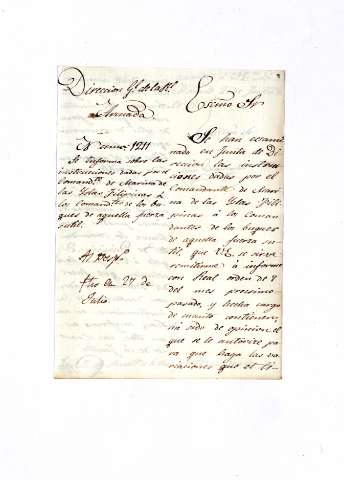 Direccion Gl. de la Rl.
Armada
N.º 1211
Se informa sobre las
instrucciones dadas por el
Comandte. de Marina de
las Islas Filipinas á
los Comandtes. de los bu
ques de aquella fuerza
sutil.
fho en 27 de
Julio
Excmo Sr
Se han exami
nado en Junta de Di
reccion las instruc
ciones dadas por el
Comandante de Mari
na de las Islas Fili
pinas á los Coman
dantes de los buques
de aquella fuerza su
til, que V.E. se sirve
remitirme á informe
con Real orden de 8
del mes procsimo
pasado, y hecha cargo
de cuanto contienen,
ha sido de opinion el
que se le autorize pa
ra que haga las va
riaciones que el ti-